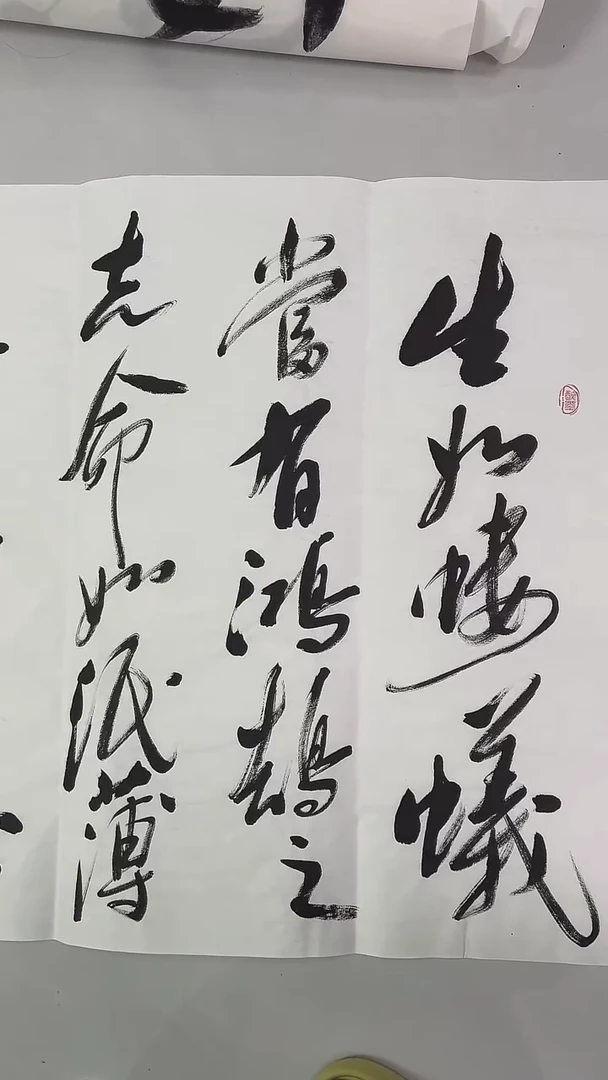 生如蝼蟻
當有鴻鵠之
志命如紙薄